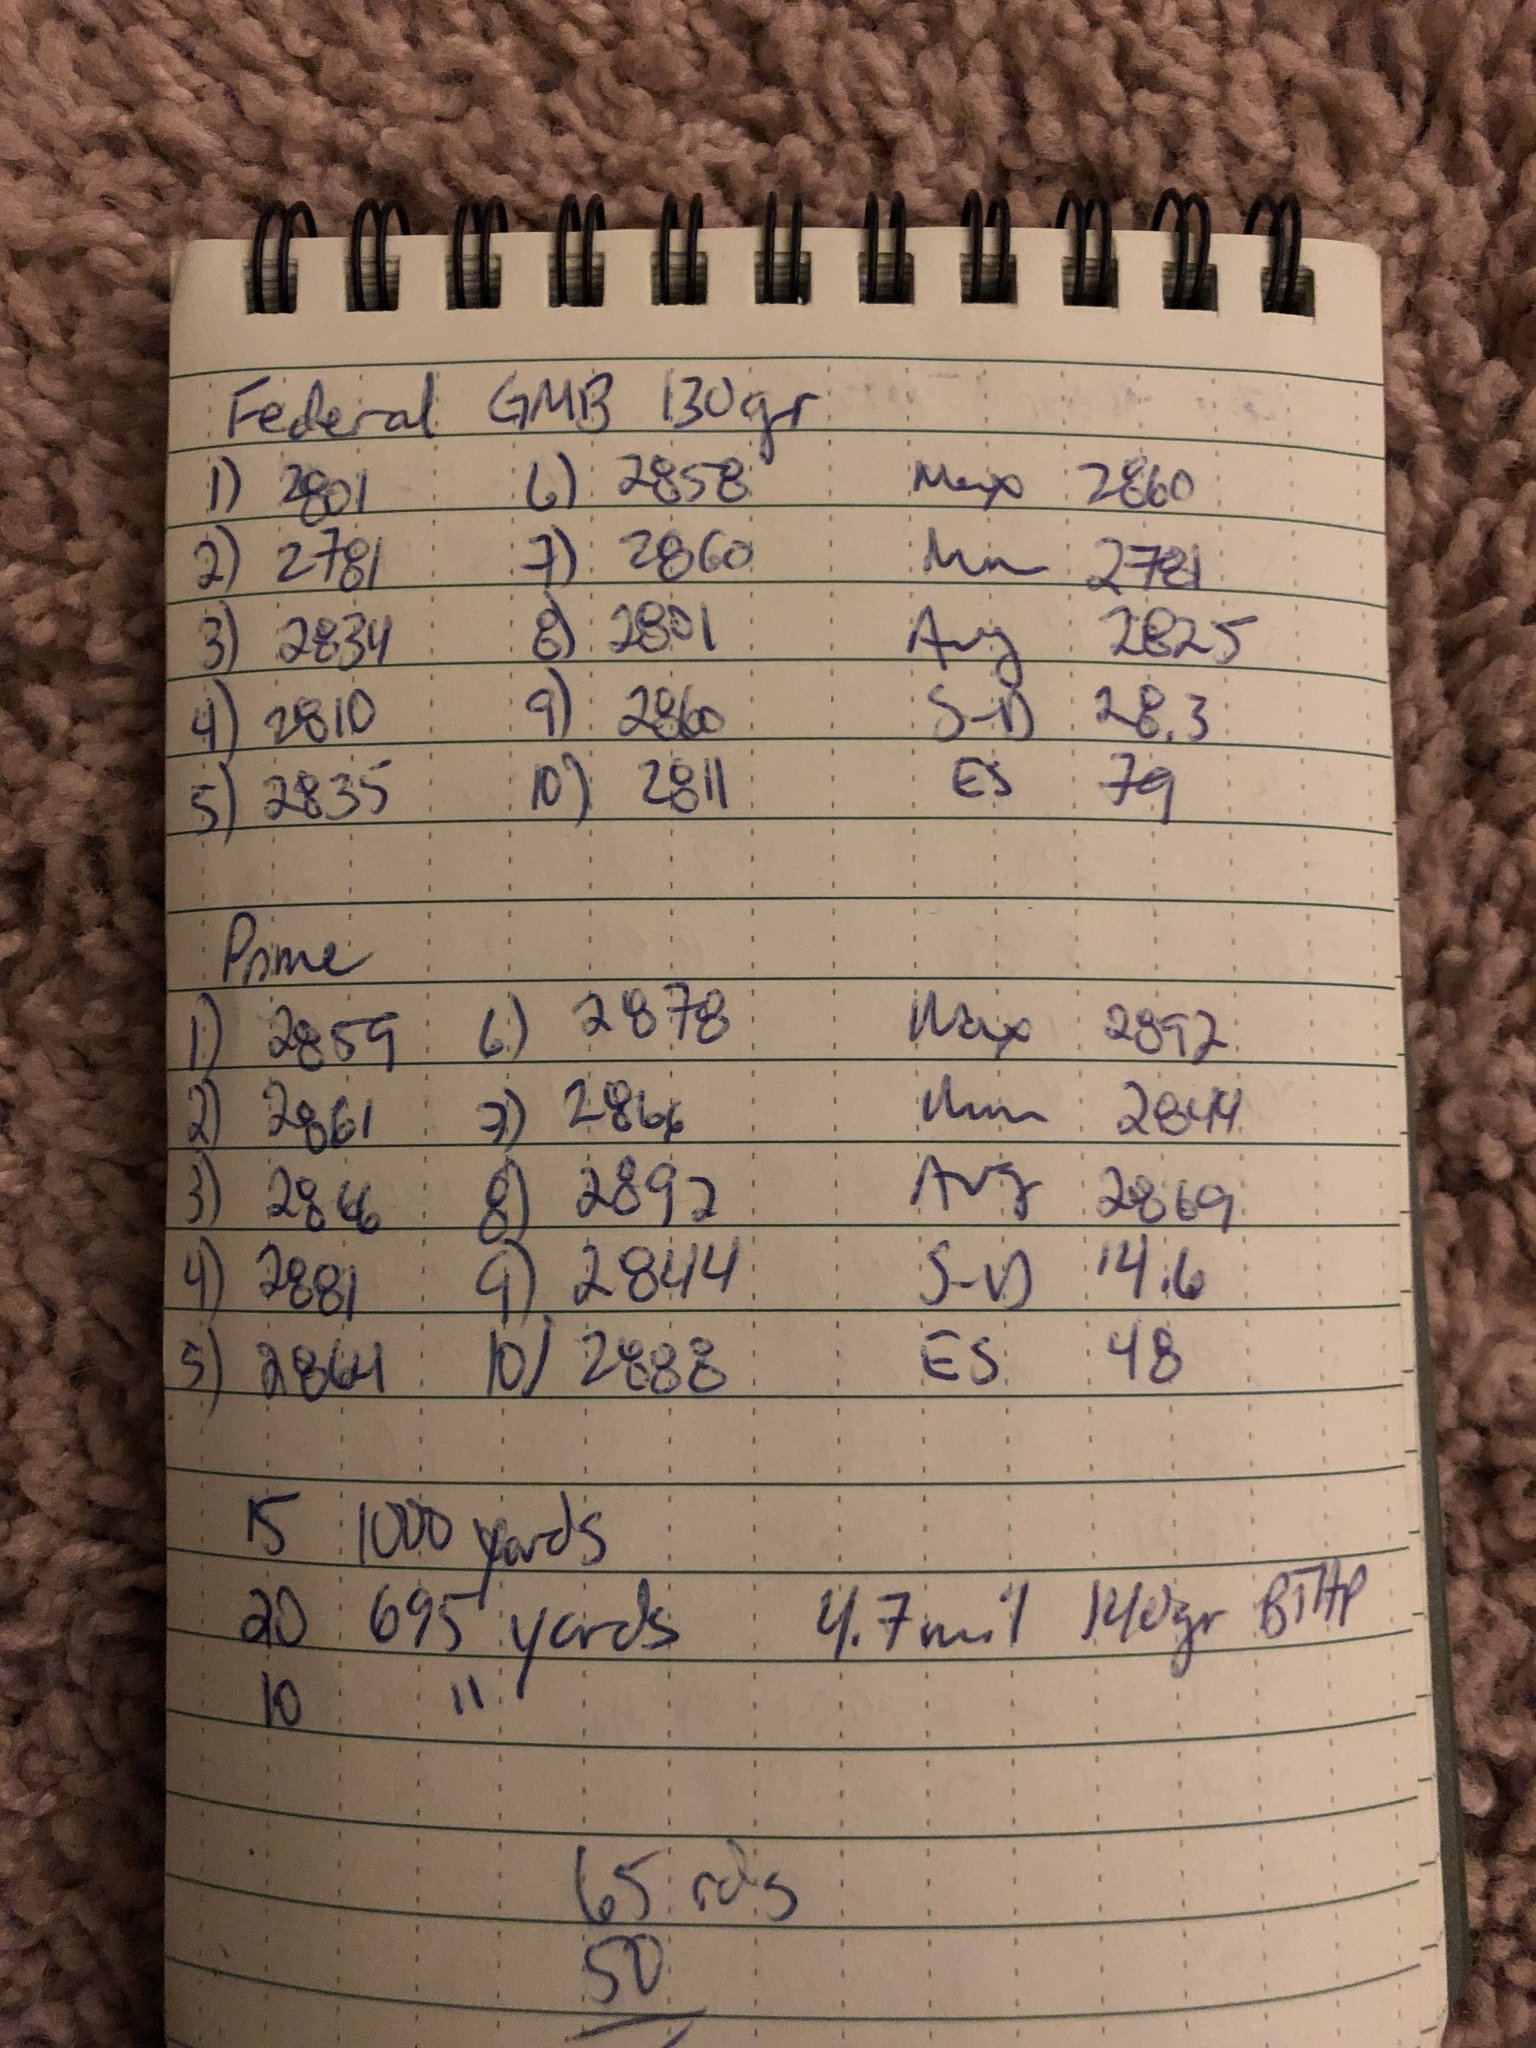 Federal GMB 130gr
1) 2801 6) 2858 Max 2860
2) 2781 7) 2860 Min 2781
3) 2834 8) 2801 Avg 2825
4) 2810 9) 2860 S-D 28.3
5) 2835 10) 2811 ES 79
Prime
1) 2859 6) 2878 Max 2892
2) 2861 7) 2866 Min 2844
3) 2866 8) 2892 Avg 2869
4) 2881 9) 2844 S-D 14.6
5) 2864 10) 2888 ES 48
15 1000 yards
20 695 yards 4.7 mil 140gr BTHP
10 "
65 rds
50